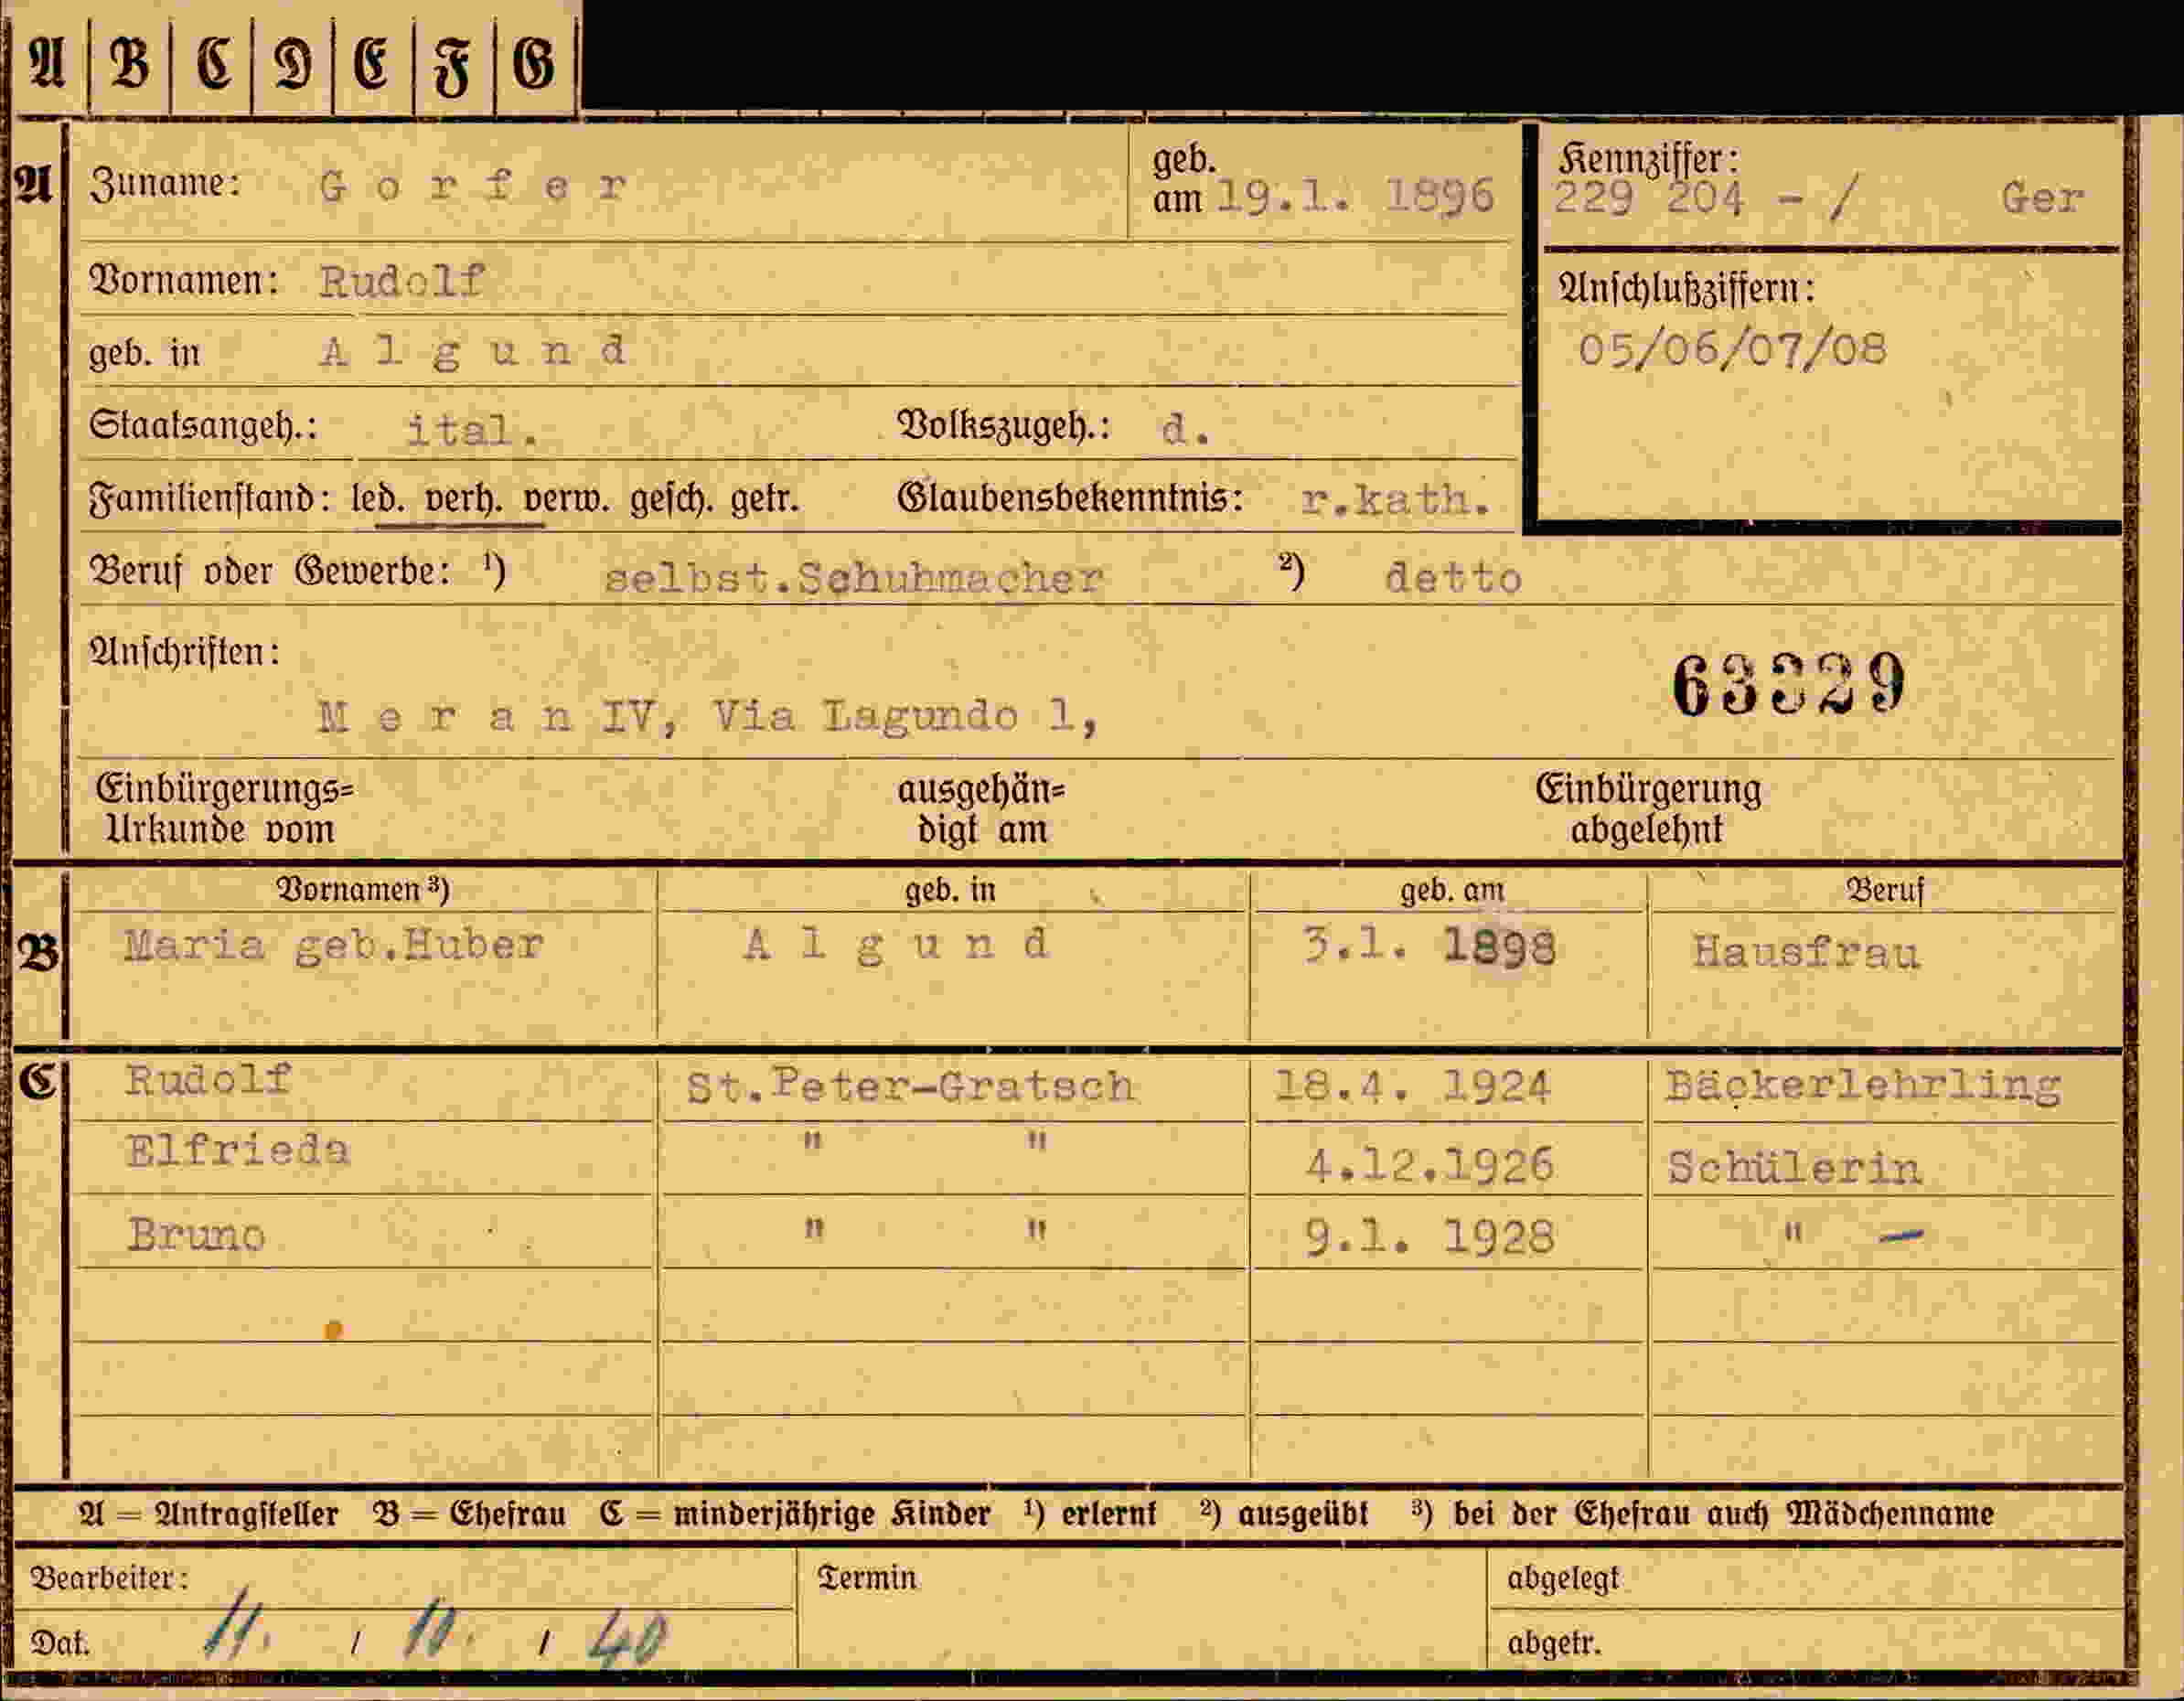 A B C D E F G
A Zuname: Gorfer geb. am 19.1. 1896 Kennziffer: 229 204 - / Ger
Vornamen: Rudolf
Anschlußziffern: 05/06/07/08
geb. in Algund
Staatsangeh.: ital. Volkszugeh.: d.
Familienstand: led. verh. verw. gesch. getr. Glaubensbekenntnis: r.kath.
Beruf oder Gewerbe: ¹) selbst.Schuhmacher ²) detto
Anschriften:
63329
Meran IV, Via Lagundo 1,
Einbürgerungs= ausgehän= Einbürgerung
Urkunde vom digt am abgelehnt
Vornamen ³) geb. in geb. am Beruf
B Maria geb.Huber Algund 3.1. 1898 Hausfrau
C Rudolf St.Peter-Gratsch 18.4. 1924 Bäckerlehrling
Elfrieda " " 4.12.1926 Schülerin
Bruno " " 9.1. 1928 " —
A = Antragsteller B = Ehefrau C = minderjährige Kinder ¹) erlernt ²) ausgeübt ³) bei der Ehefrau auch Mädchenname
Bearbeiter: Termin abgelegt
Dat. 11. / 10. / 40 abgetr.